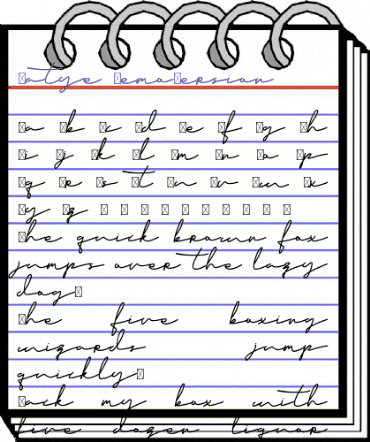 ▯atye ▯emo▯ersion
▯a ▯b ▯c ▯d ▯e ▯f ▯g ▯h
▯i ▯j ▯k ▯l ▯m ▯n ▯o ▯p
▯q ▯r ▯s ▯t ▯u ▯v ▯w ▯x
▯y ▯z ▯ ▯ ▯ ▯ ▯ ▯ ▯ ▯ ▯ ▯
▯he quick brown fox
jumps over the lazy
dog▯
▯he five boxing
wizards jump
quickly▯
▯ack my box with
five dozen liquor